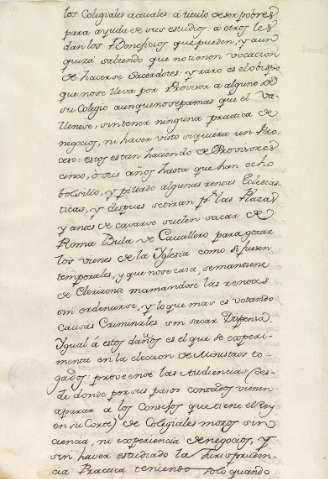 los Colegiales actuales á titulo de ser pobres
para ayuda de sus estudios á otros les
dan los Beneficios que pueden, y aun
quiza sabiendo que no tienen vocacion
de hacerse Sacerdotes: y raro es el obispo
que no se lleva por Provisor a alguno de
su Colegio aunque no sepamos que el
llevese: sin tener ninguna practica de
negocios, ni haver visto siquiera un Pro
ceso: estos estan haciendo de Provisores
cinco, ó seis años hasta que han echo
bolsillo, y pillado algunas rentas Eclesias
ticas, y despues se tiran por las Plazas
y antes de casarse suelen sacar de
Roma Bula de Cavallero para gozar
los vienes de la Iglesia como si fuesen
temporales, y que no se casa, se mantiene
de Clerizonte mamandose las rentas
sin ordenarse, y lo que mas es votando
causas Criminales sin sacar Dispensa.
Igual á estos daños es el que se experi
menta en la eleccion de Ministros to
gados: proveense las Audiencias (des
de donde por sus pasos contados vienen
a parar a los Consejos que tiene el Rey
en su Corte) de Colegiales mozos sin
ciencia, ni experiencia de negocios, y
sin haver estudiado la Jurisprudencia
cia Practica teniendo solo quando